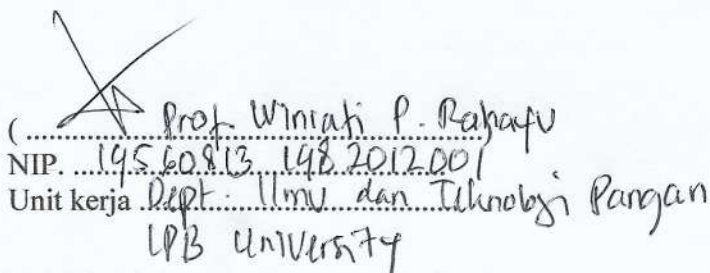 ( Prof. Winiati P. Rahayu
NIP. 19560813 198201 2 001
Unit kerja Dept. Ilmu dan Teknologi Pangan
IPB University